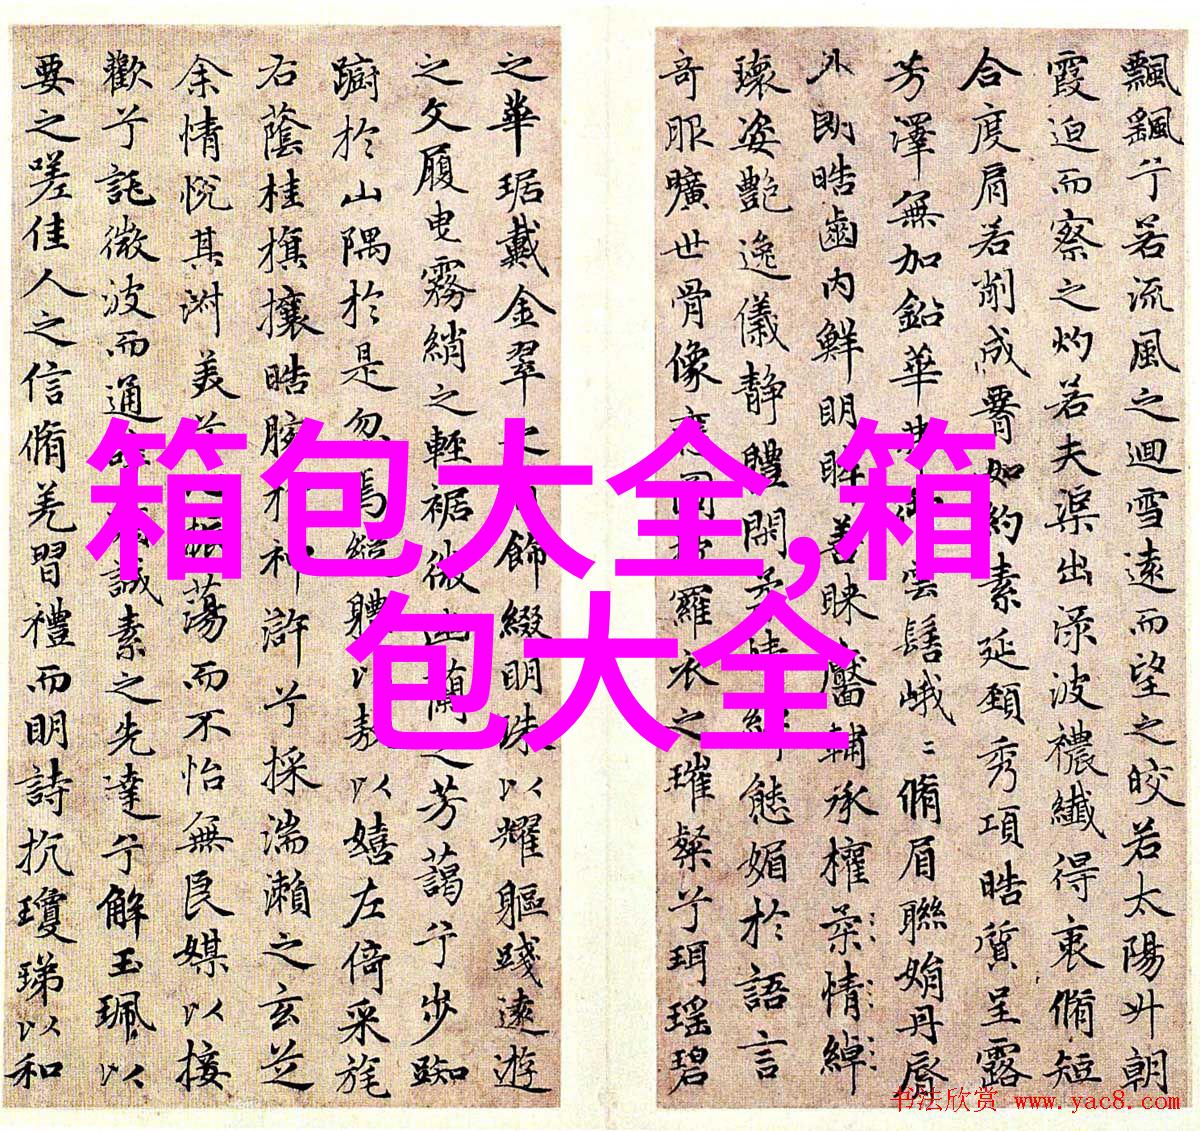 飄飖兮若流風之迴雪遠而望之皎若太陽升朝
霞迫而察之灼若夫渠出淥波禯纖得衷脩短
合度肩若削成腰如約素延頸秀項皓質呈露
芳澤無加鉛華弗御雲髻峨〻脩眉聯娟丹脣
外朗皓齒內鮮明眸善睞靨輔承權柔情綽
瓌姿艷逸儀静體閑柔情綽態媚於語言
奇服曠世骨像應圖披羅衣之璀粲兮珥瑶碧
之華琚戴金翠之首飾綴明珠以耀軀踐遠遊
之文履曳霧綃之輕裾微幽蘭之芳藹兮步踟
躕於山隅於是忽焉縱體以敖以嬉左倚采旄
右蔭桂旗攘皓腕於神滸兮採湍瀨之玄芝
余情悅其淑美兮心振蕩而不怡無良媒以接
歡兮託微波而通誠素之先達兮解玉珮以
要之嗟佳人之信脩羌習禮而明詩抗瓊珶以和
箱包大全,箱
包大全
书法欣赏 www.yac8.com